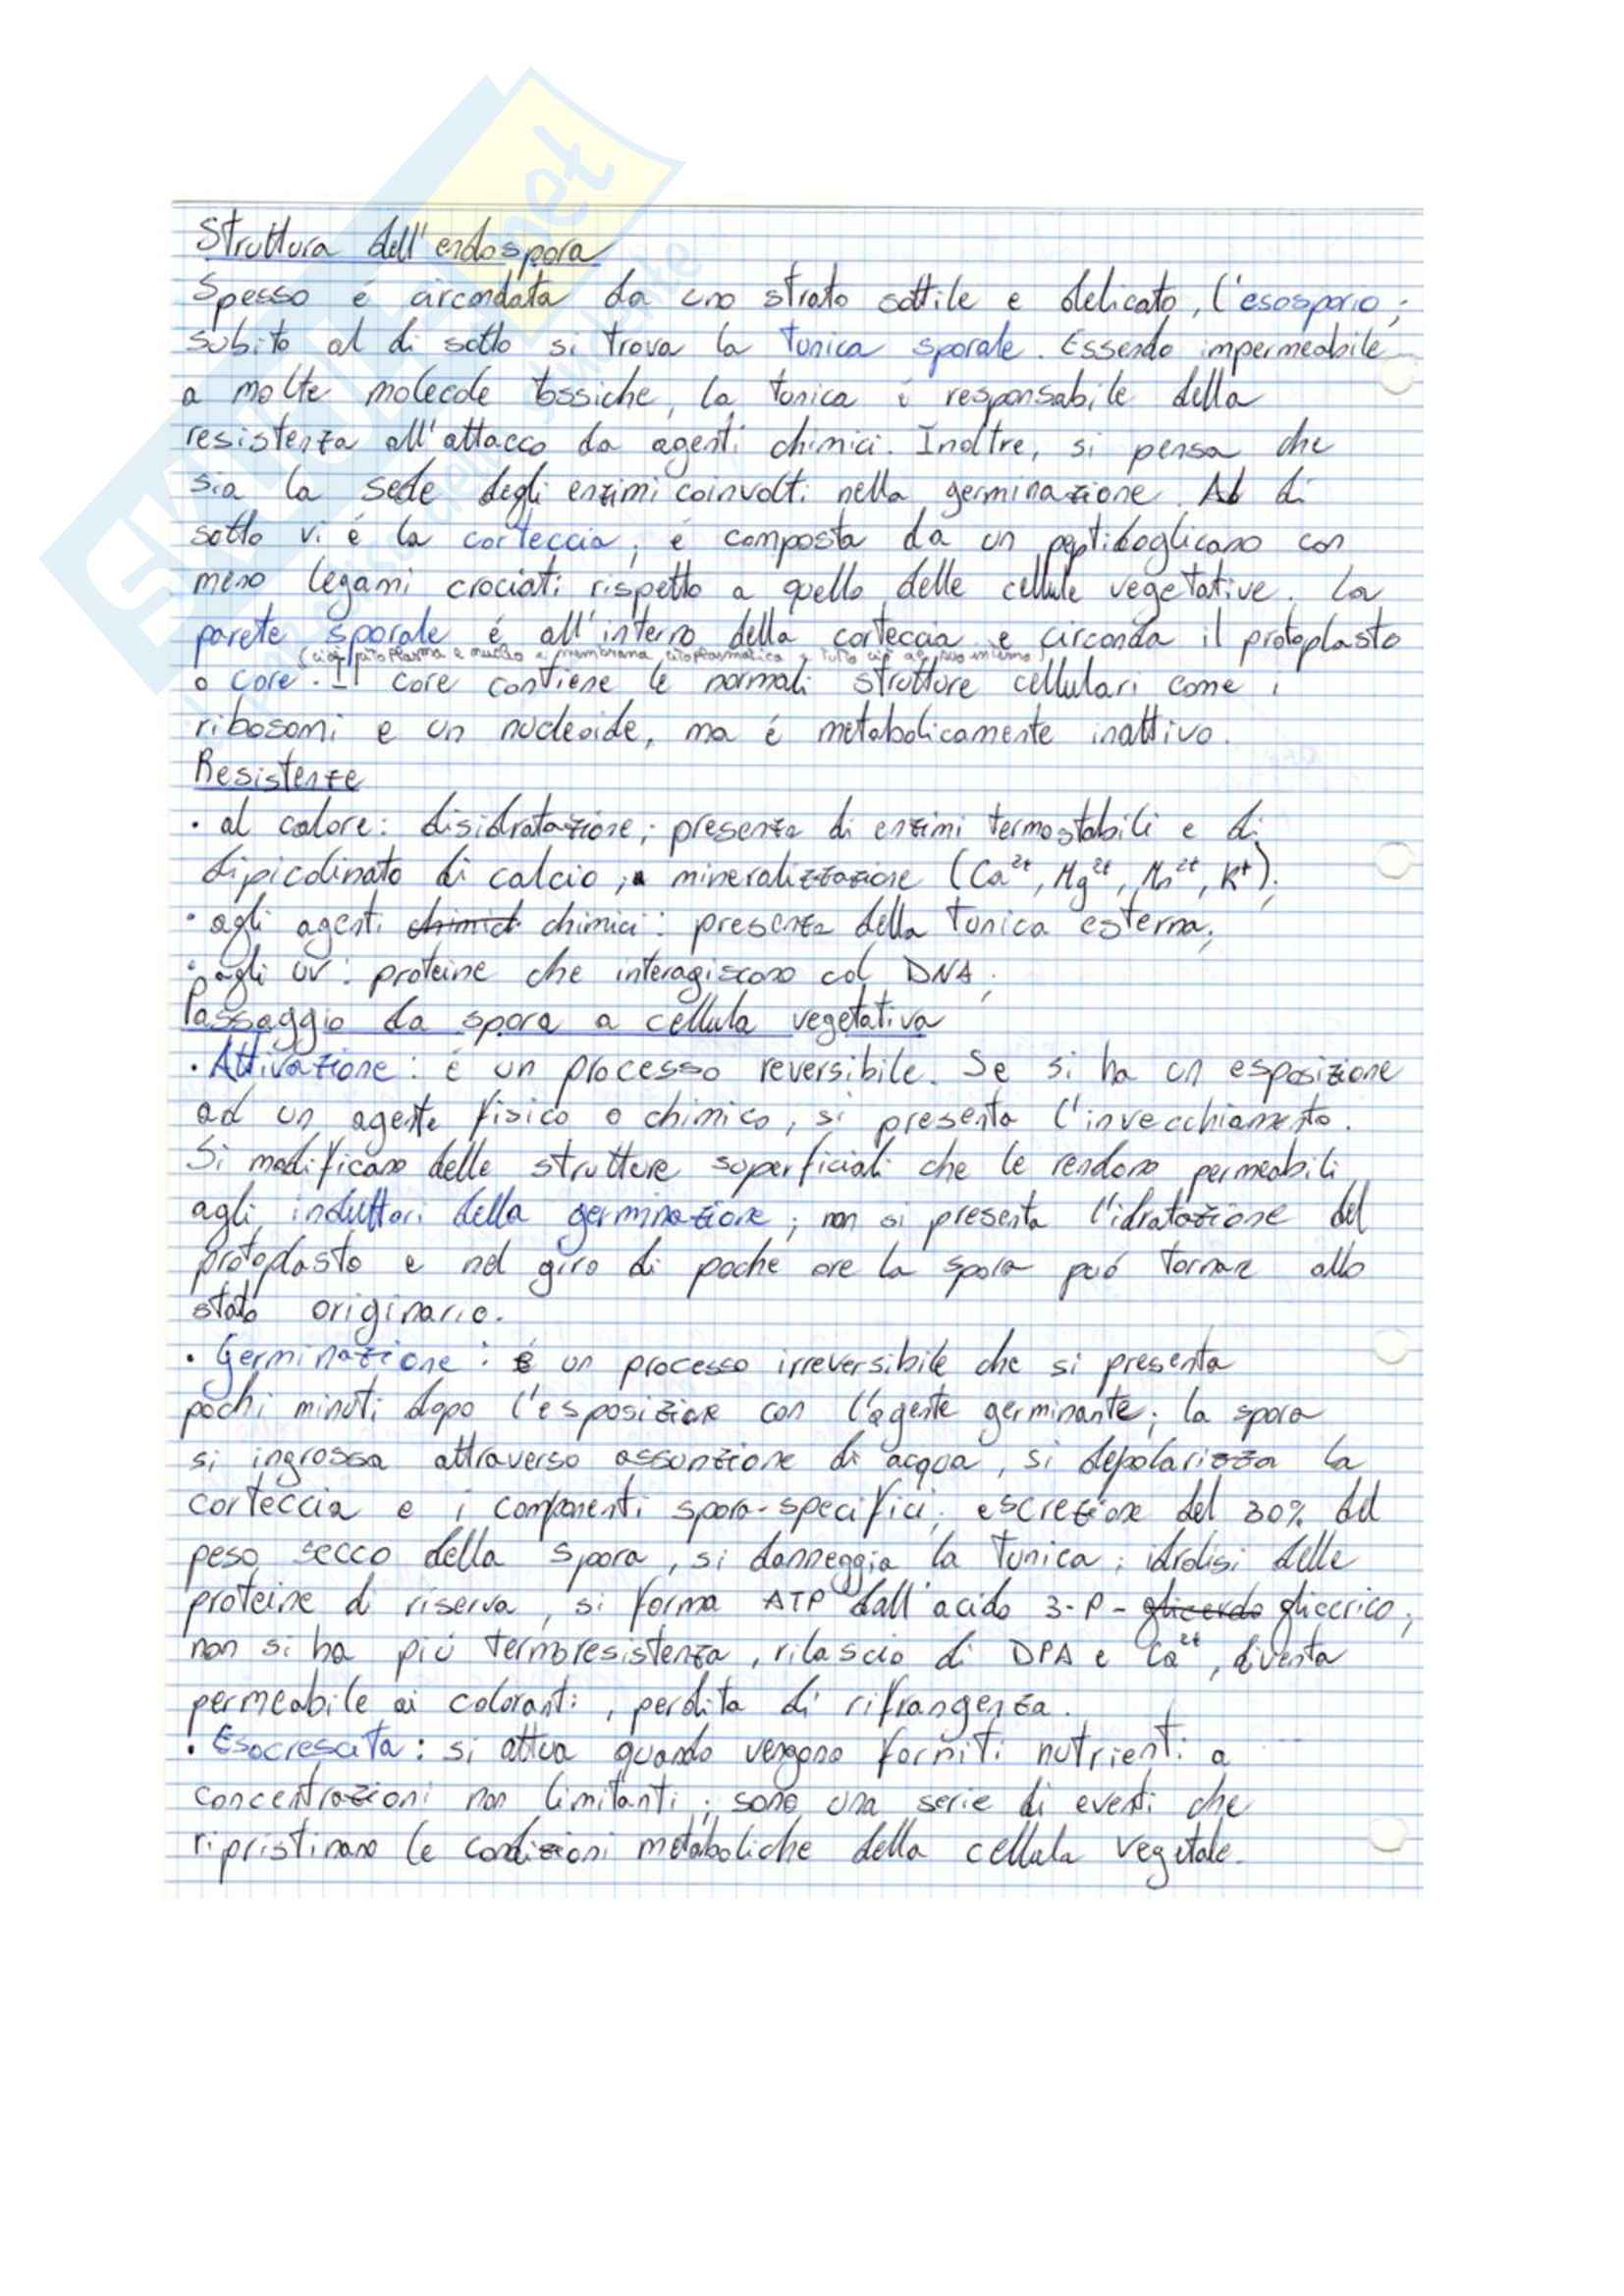 Struttura dell'endospora
Spesso é circondata da uno strato sottile e delicato, l'esosporio;
subito al di sotto si trova la tonica sporale. Essendo impermeabile
a molte molecole tossiche, la tonica é responsabile della
resistenza all'attacco da agenti chimici. Inoltre, si pensa che
sia la sede degli enzimi coinvolti nella germinazione. Al di
sotto vi é la corteccia; é composta da un peptidoglicano con
meno legami crociati rispetto a quello delle cellule vegetative. La
parete sporale é all'interno della corteccia e circonda il protoplasto
(cioé citoplasma e nucleo e membrana citoplasmatica e tutto ciò al suo interno)
o core. Il core contiene le normali strutture cellulari come i
ribosomi e un nucleoide, ma é metabolicamente inattivo.
Resistenze
• al calore: disidratazione; presenza di enzimi termostabili e di
dipicolinato di calcio; mineralizzazione (Ca²⁺, Mg²⁺, Mn²⁺, K⁺);
• agli agenti chimici chimici: presenza della tonica esterna;
• agli UV: proteine che interagiscono col DNA;
Passaggio da spora a cellula vegetativa
• Attivazione: é un processo reversibile. Se si ha un esposizione
ad un agente fisico o chimico, si presenta l'invecchiamento.
Si modificano delle strutture superficiali che le rendono permeabili
agli induttori della germinazione; non si presenta l'idratazione del
protoplasto e nel giro di poche ore la spora puó tornare allo
stato originario.
• Germinazione: é un processo irreversibile che si presenta
pochi minuti dopo l'esposizione con l'agente germinante; la spora
si ingrossa attraverso assunzione di acqua, si depolarizza la
corteccia e i componenti spora-specifici; escrezione del 30% del
peso secco della spora, si danneggia la tunica; idrolisi delle
proteine di riserva, si forma ATP dall'acido 3-P-glicerdo glicerico;
non si ha piú termoresistenza, rilascio di DPA e Ca²⁺, diventa
permeabile ai coloranti, perdita di rifrangenza.
• Esocrescita: si attua quando vengono forniti nutrienti a
concentrazioni non limitanti; sono una serie di eventi che
ripristinano le condizioni metaboliche della cellula vegetale.